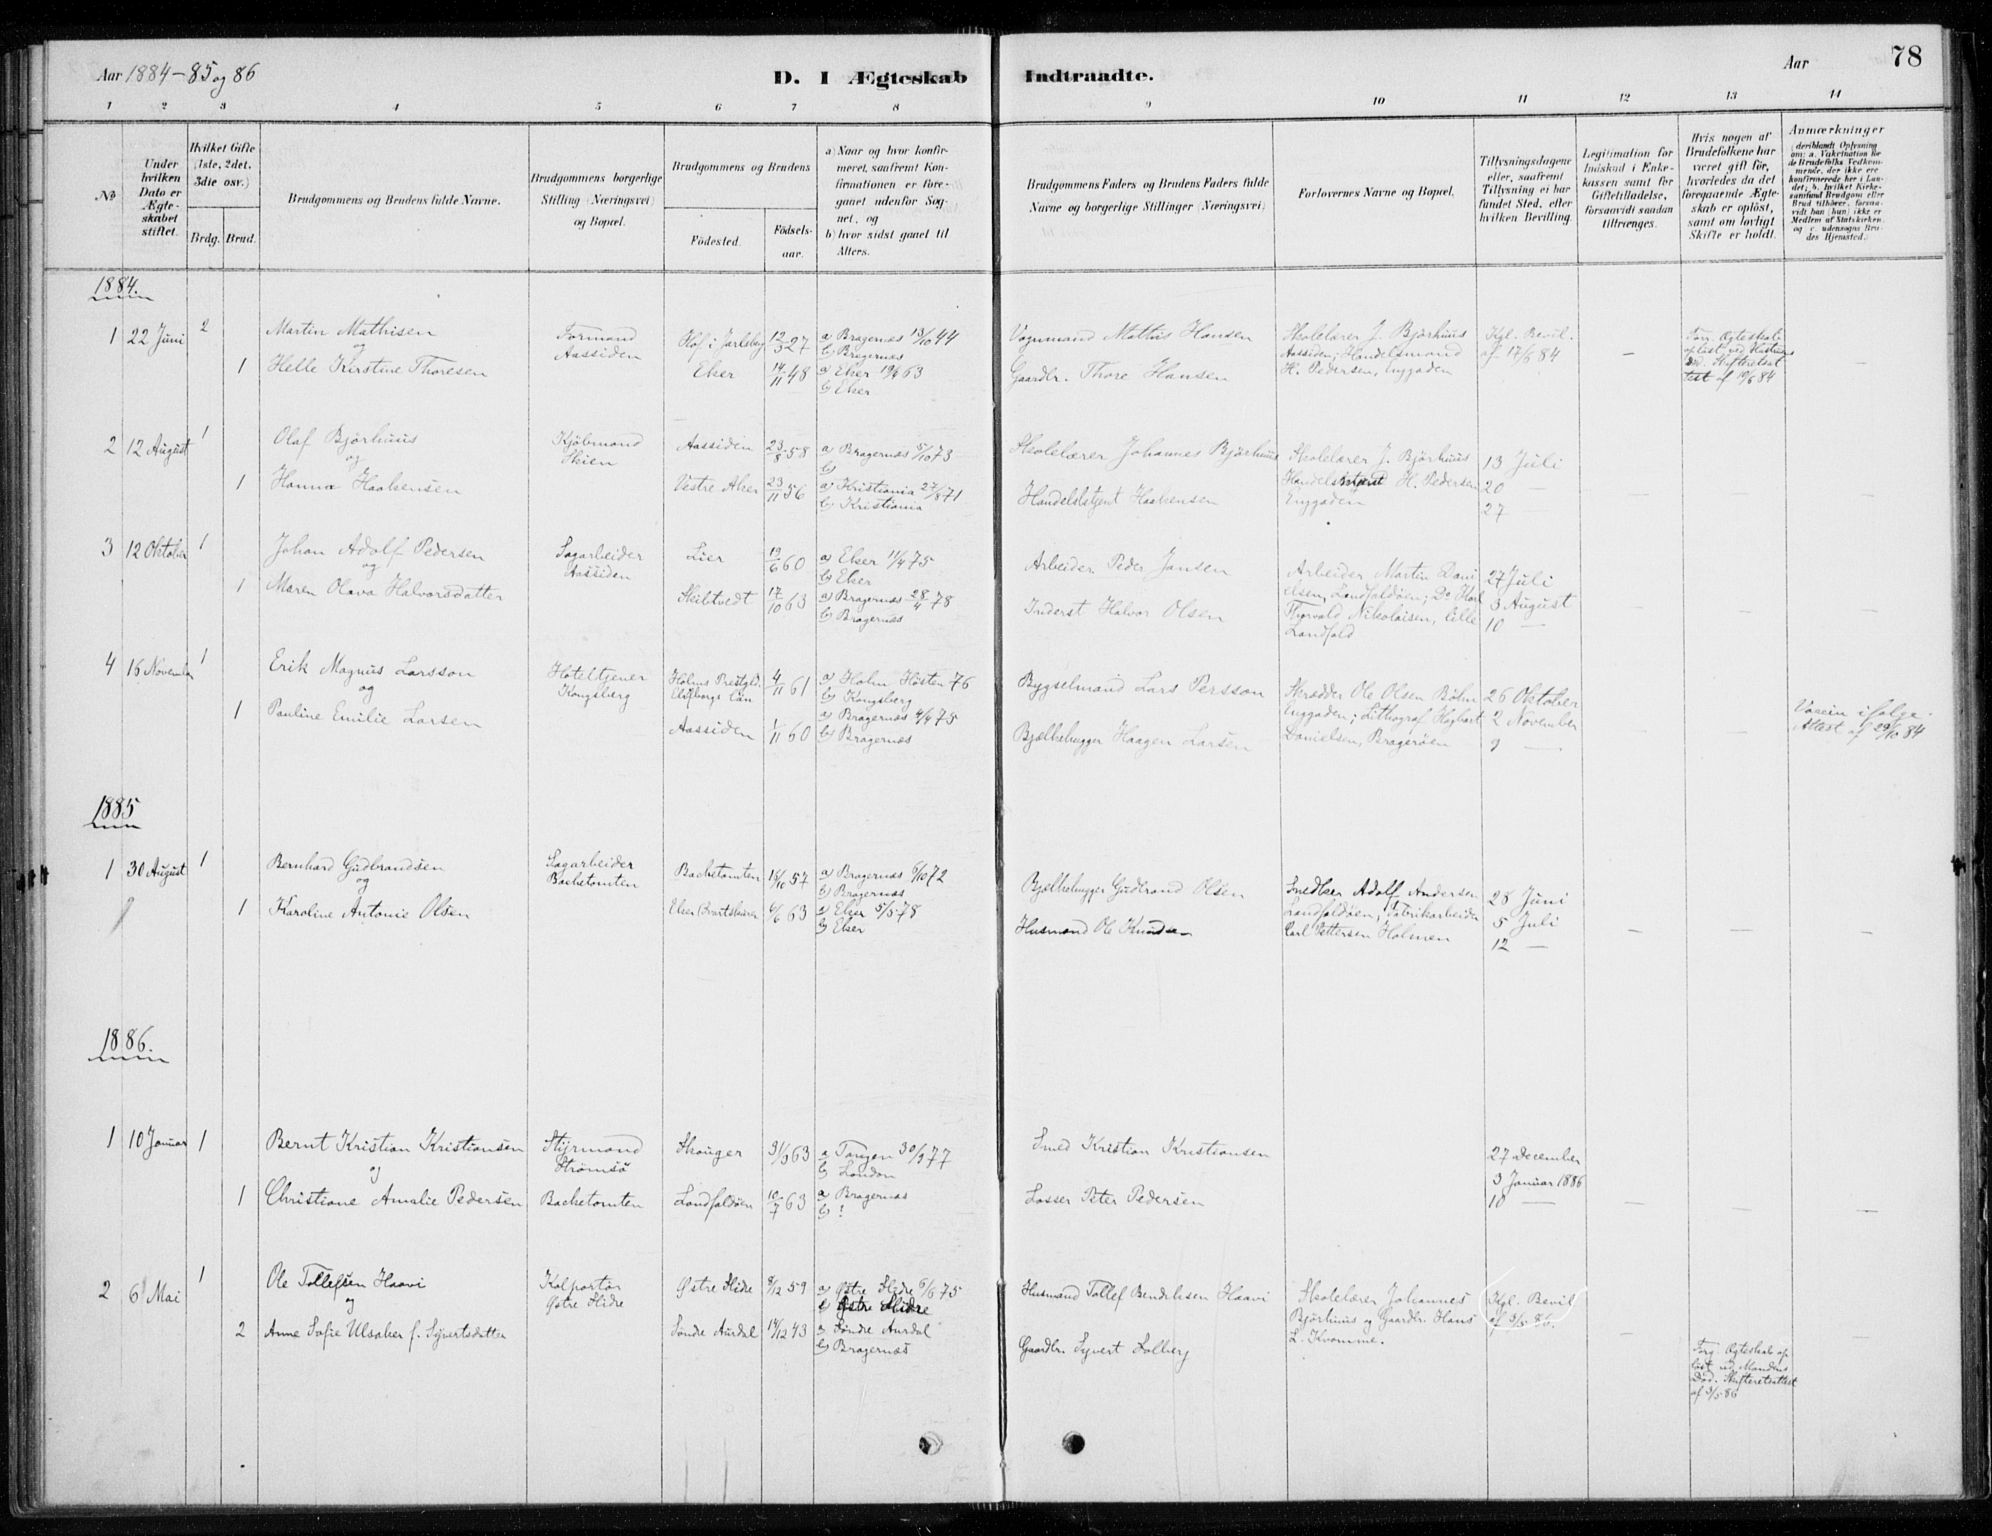 Aar 1884-85 og 86
D. I Ægteskab Indtraadte.
Aar
78
1 2 3 4 5 6 7 8 9 10 11 12 13 14
No
Under hvilken Dato er Ægteskabet stiftet.
Hvilket Gifte (1ste, 2det, 3die osv.)
Brdg. Brud.
Brudgommens og Brudens fulde Navne.
Brudgommens borgerlige Stilling (Næringsvei) og Bopæl.
Brudgommens og Brudens
Fødested. Fødselsaar.
a) Naar og hvor konfirmeret, saafremt Konfirmationen er foregaaet udenfor Sognet, og
b) hvor sidst gaaet til Alters.
Brudgommens Faders og Brudens Faders fulde Navne og borgerlige Stillinger (Næringsvei)
Forlovernes Navne og Bopæl.
Tillysningsdagene eller, saafremt Tillysning ei har fundet Sted, efter hvilken Bevilling.
Legitimation for Indskud i Enkekassen samt for Giftetilladelse, forsaavidt saadan tiltrænges.
Hvis nogen af Brudefolkene har været gift før, hvorledes da det foregaaende Ægteskab er opløst, samt om lovligt Skifte er holdt.
Anmærkninger (deriblandt Oplysning om: a. Vakcination for de Brudefolks Vedkommende, der ikke ere konfirmerede her i Landet; b. hvilket Kirkesamfund Brudgom eller Brud tilhører, forsaavidt han (hun) ikke er Medlem af Statskirken, og c. udensogns Brudes Hjemsted.)
1884.
1 22 Juni 2 Martin Mathisen Formand Hof i Jarlsberg 12/3 27 a) Bragernæs 13/10 44 Vognmand Mathis Hansen Skolelærer J. Bjørhuus Kgl. Bevil.
og Aassiden b) Bragernæs Aassiden; Handelsmand af 17/6 84
1 Helle Kirstine Thoresen Eker 14/11 48 a) Eker 19/4 63 Gaardbr. Thore Hansen H. Pedersen, Enggaden
b) Eker
Forr. Ægteskab
opløst ved Hustruens
Død. Skifteretsat
test af 19/6 84
2 12 August 1 Olaf Bjørhuus Kjøbmand Aassiden 23/8 58 a) Bragernæs 5/10 73 Skolelærer Johannes Bjørhuus Skolelærer J. Bjørhuus 13 Juli
og Skien b) H. Pedersen 20 —
1 Hanna Haakensen Vestre Aker 23/11 56 a) Kristiania 27/8 71 Handelsbetjent Haakensen Enggaden 27
b) Kristiania
3 12 Oktober 1 Johan Adolf Pedersen Sagarbeider Lier 19/6 60 a) Eker 11/4 75 Arbeider Peder Jansen Arbeider Martin Dani 27 Juli
og Aassiden b) Eker elsen, Landfaldøen; Do Karl 3 August
1 Maren Olava Halvorsdatter Skibtvedt 17/10 63 a) Bragernæs 28/4 78 Inderst Halvor Olsen Thorvald Nikolaisen, Lille 10 —
b) Bragernæs Landfald
4 16 November 1 Erik Magnus Larsson Hoteltjener Holms Prestgld. 4/11 61 a) Holm Høsten 76 Bygselmand Lars Persson Skrædder Ole Olsen Bøhn 26 Oktober
og Kongsberg Elfsborgs Län b) Kongsberg Enggaden; Lithograf Hagbart 2 November
1 Pauline Emilie Larsen Aassiden 1/11 60 a) Bragernæs 4/4 75 Bjælkehugger Haagen Larsen Danielsen, Bragerøen 9 —
b) Bragernæs
Vaccin ifølge
Attest af 29/10 84
1885
1 30 August 1 Bernhard Gudbrandsen Sagarbeider Bachetomten 15/10 57 a) Bragernæs 6/10 72 Bjælkehugger Gudbrand Olsen Snedker Adolf Andersen 28 Juni
og Bachetomten b) Bragernæs Landfaldøen; Fabrikarbeider 5 Juli
1 Karoline Antonie Olsen Eker 4/6 63 a) Eker 5/5 78 Husmand Ole Knudsen Carl Pettersen Holmen 12 —
b) Eker
1886.
1 10 Januar 1 Bernt Kristian Kristiansen Styrmand Skouger 31/3 63 a) Tangen 30/9 77 Smed Kristian Kristiansen 27 December
og Strømsø b) London 3 Januar 1886
1 Christiane Amalie Pedersen Bachetomten Landfaldøen 10/7 63 a) Bragernæs Losser Peter Pedersen 10 —
b) !
2 6 Mai 1 Ole Tollefsen Haavi Kolportør Østre Slidre 8/12 59 a) Østre Slidre 6/6 75 Husmand Tollef Bendiksen Haavi Skolelærer Johannes Kgl. Bevil
og Østre Slidre b) Østre Slidre Bjørhuus og Gaardbr. Hans af 3/5 86.
2 Anne Sofie Ulsaker f. Syvertsdatter Søndre Aurdal 14/12 43 a) Søndre Aurdal Gaardbr. Syvert Solberg L. Kvamme.
b) Bragernæs
Forg. Ægteskab op
løst ved Mandens
Død. Skifteretsattest
af 3/5 86